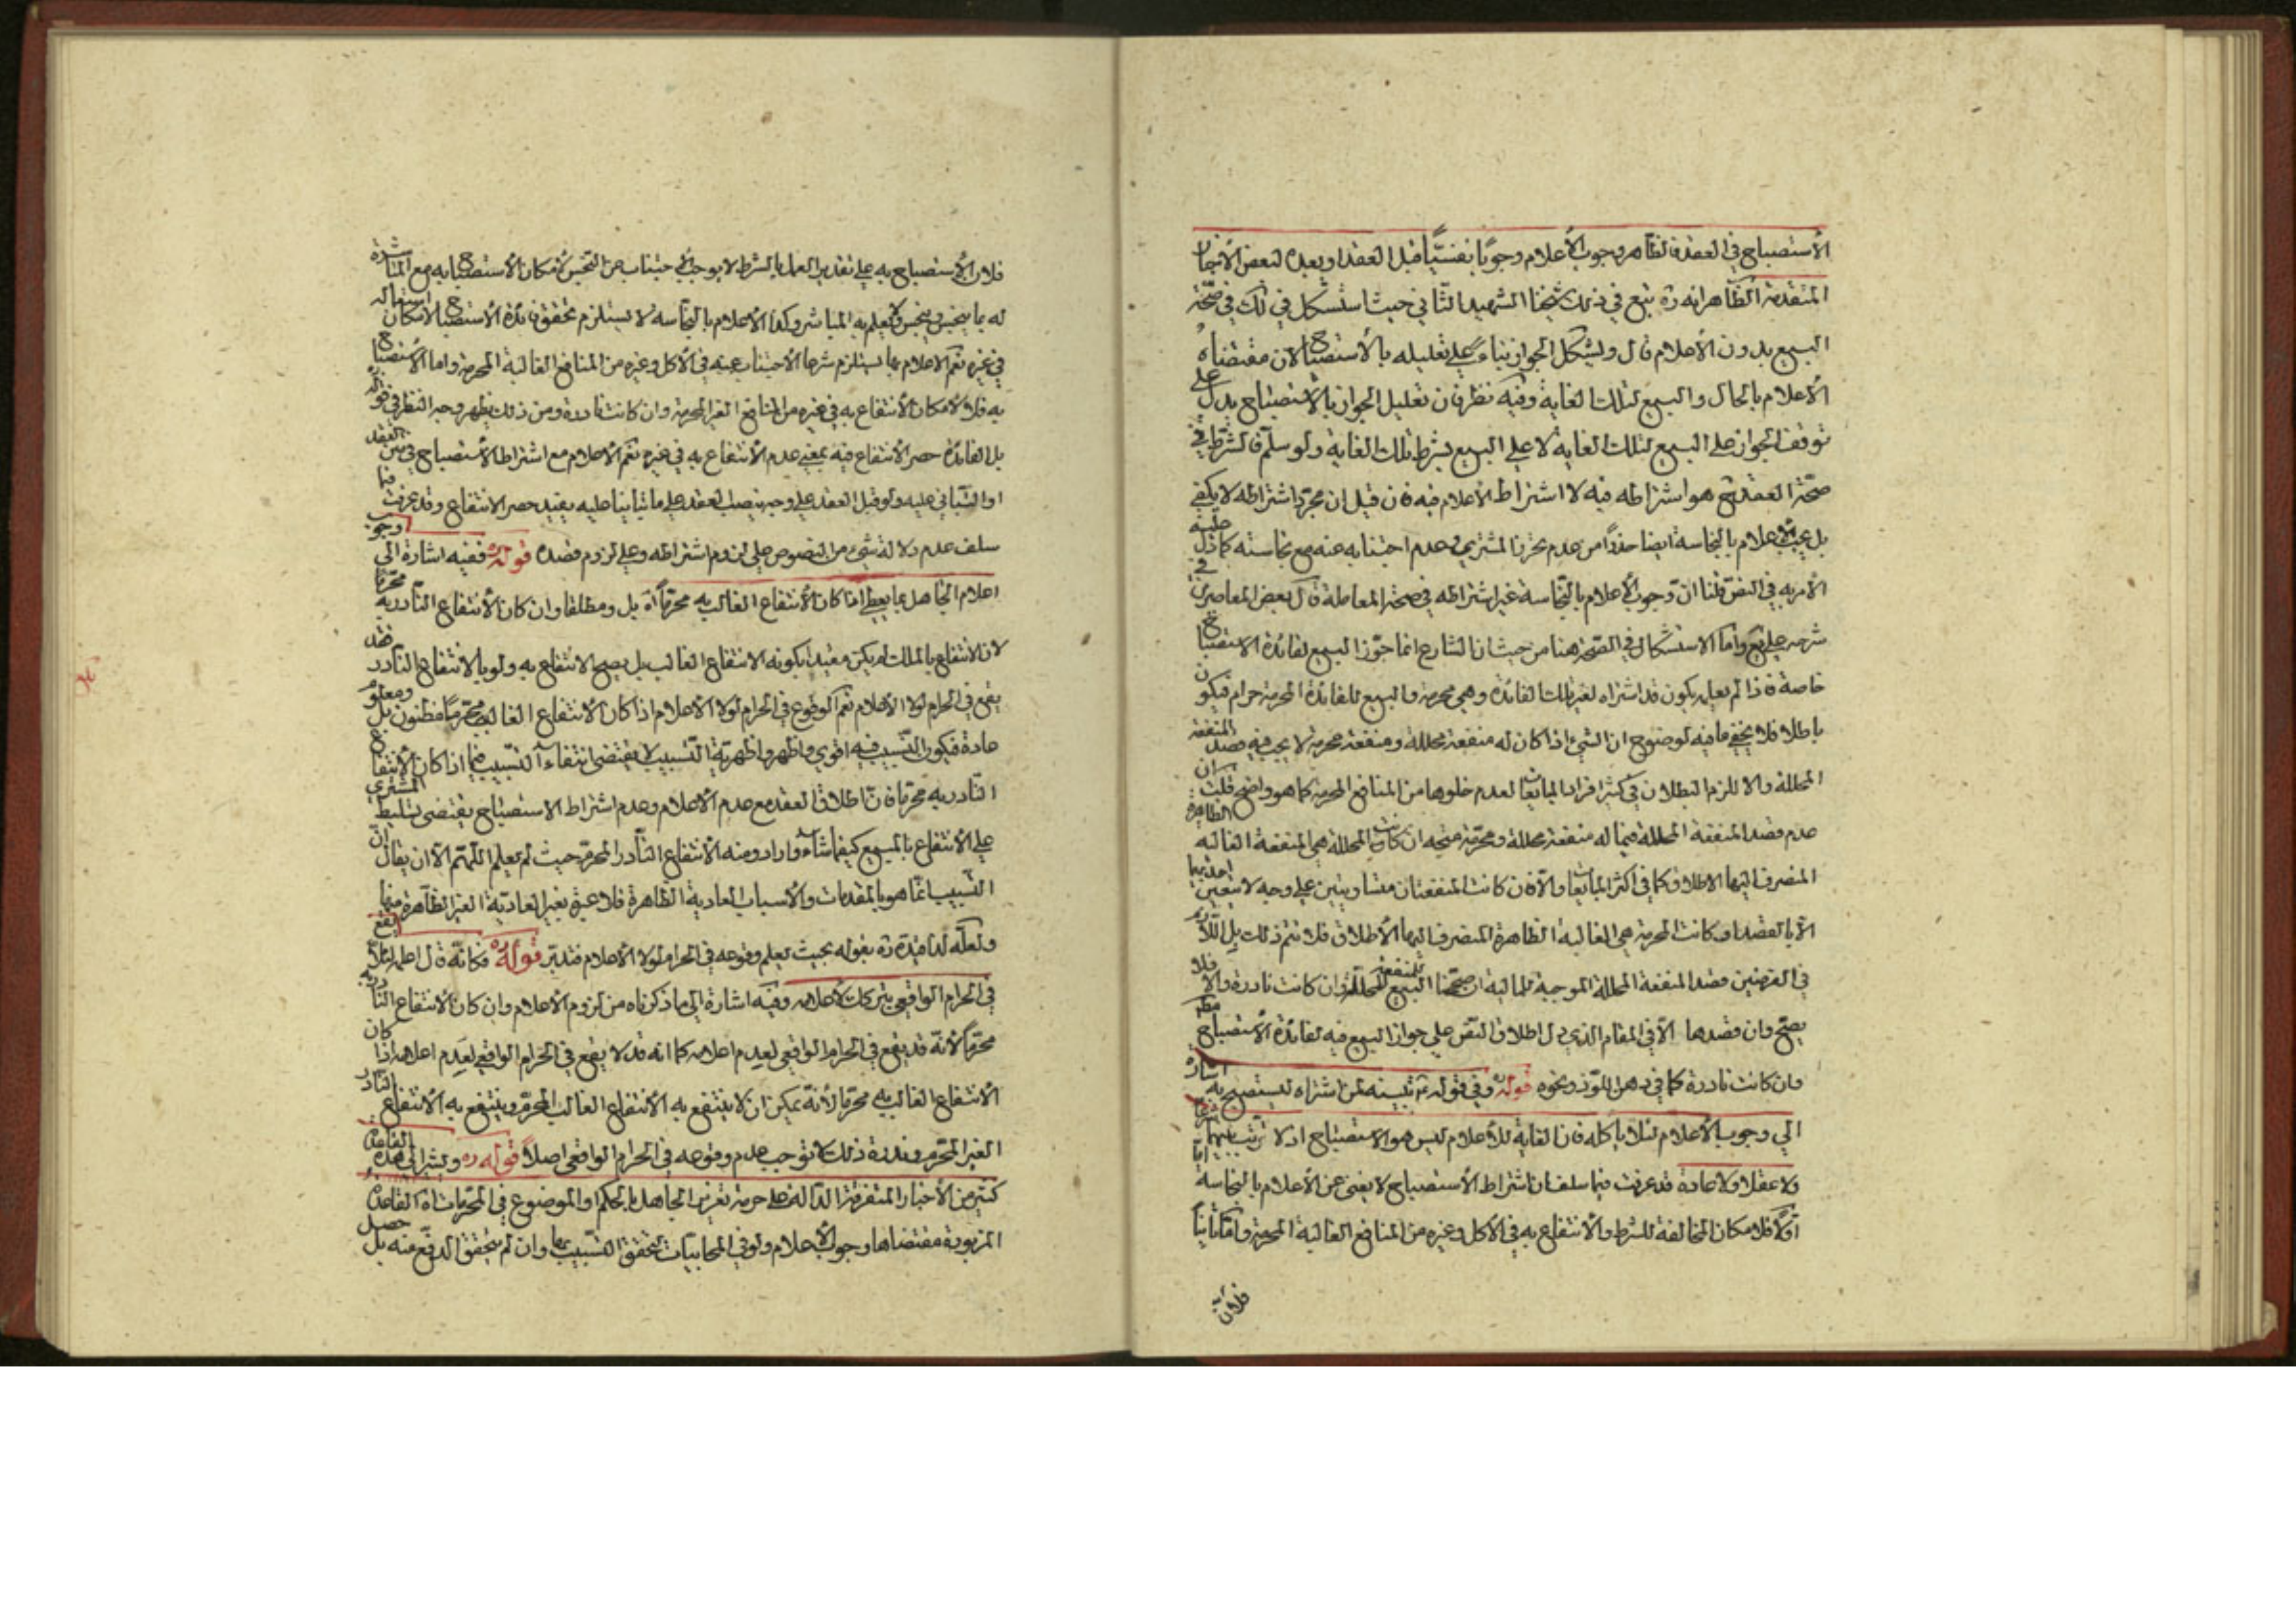 الأستصباح في العقد فالظاهر وجوب الأعلام وجوبًا نفسيًّا قبل العقد او بعده لبعض الأخبار
المتقدمة الظاهر انه ره تبع في ذلك شيخنا الشهيد الثاني حيث استشكل في لك في صحّة
البيع بدون الأعلام قال ويشكل الجواز بناء على تعليله بالأستصباح لان مقتضاه
الأعلام بالحال والبيع لتلك الغاية وفيه نظر فان تعليل الجواز بالأستصباح يدل على
توقف الجواز على البيع لتلك الغاية لا على البيع بشرط تلك الغاية ولو سلّم فالشرط في
صحّة العقد ح هو اشتراطه فيه لا اشتراط الأعلام فيه فان قيل ان مجرّد اشتراطه لا يكفي
بل يجب الأعلام بالنجاسة ايضا حذرًا من عدم تحرز المشتري وعدم اجتنابه عنه مع نجاسته كما دلّ عليه
الأمر به في النصّ قلنا انّ وجوب الأعلام بالنّجاسة غير اشتراطه في صحة المعاملة قال بعض المعاصرين في
شرحه على يع واما الاستشكال في الصّحة هنا من حيث ان الشارع انما جوّز البيع لفائدة الاستصباح
خاصة فاذا لم يعلمه يكون قد اشتراه لغير تلك الفائدة وهي محرمة والبيع للفائدة المحرمة حرام فيكون
باطلا فلا يخفى ما فيه لوضوح ان الشيء اذا كان له منفعة محللة ومنفعة محرمة لا يجب فيه قصد المنفعة
المحللة والا للزم البطلان في كثر افراد المايعات لعدم خلوها من المنافع المحرمة كما هو واضح قلت ان
عدم قصد المنفعة المحللة فيما له منفعة محللة ومحرّمة متجه ان كانت المحللة هي المنفعة الغالبه الظاهرة
المنصرف اليها الاطلاق كما في اكثر المايعات والّا فان كانت المنفعتان متساويتين على وجه لا يتعين احديهما
الّا بالقصد او كانت المحرمة هي الغالبة الظاهرة المنصرف اليها الأطلاق فلا نتم ذلك بل اللّازم
في الفرضين قصد المنفعة المحللة الموجبة للمالية ان صحّحنا البيع للمنفعة المحلّلة وان كانت نادرة والّا فلا
يصحّ وان قصدها الّا في المقام الذي دل اطلاق النّص على جواز البيع فيه لفائدة الأستصباح مطم
وان كانت نادرة كما في دهن اللوز ونحوه قوله ره وفي قوله ع يبينه لمن اشتراه ليستصبح به اشارة
الى وجوب الأعلام لئلا ياكله فان الغاية للأعلام ليس هو الاستصباح اذ لا ترتب بينهما شرعا
ولا عقلا ولا عادة قد عرفت فيما سلف ان اشتراط الأستصباح لا يغني عن الأعلام بالنجاسة امّا
اوّلًا فلامكان المخالفة للشرط والأنتفاع به في الأكل وغيره من المنافع الغالبة المحرمة واما ثانياً
فلان
فلان الأستصباح به على تقدير العمل بالشرط لا يوجب الأجتناب عن النّجس لأمكان الأستصباح به مع المباشرة
له بما ينجس وينجس ولا يعلم به المباشر وكذا الأعلام بالنجاسه لا يستلزم تحقق فائدة الأستصباح لامكان استعماله
في غيره نعم الاعلام بها يستلزم شرعا الأجتناب عنه في الأكل وغيره من المنافع الغالبة المحرمة واما الأستصباح
به فلا لأمكان الأنتفاع به في غيره من المنافع الغير المحرمة وان كانت نادرة ومن ذلك يظهر وجه النظر في قوله
بل الفائدة حصر الأنتفاع فيه بمعني عدم الأنتفاع به في غيره نعم الأعلام مع اشتراط الأستصباح في متن العقد
او التباني عليه ولو قبل العقد على وجه ينصب العقد على ما تبانيا عليه يفيد حصر الانتفاع وقد عرفت فيما
سلف عدم دلالة شيء من النصوص على لزوم اشتراطه وعلى لزوم قصده قوله ره ففيه اشارة الى وجوب
اعلام الجاهل بما يعطى اذا كان الأنتفاع الغالب به محرّمًا اه بل ومطلقا وان كان الأنتفاع النّادر به محرّما
لان الانتفاع بالملك لم يكن مقيدًا بكونه الانتفاع الغالب بل يصح الانتفاع به ولو بالانتفاع النّادر فقد
يقع في الحرام لولا الأعلام نعم الوقوع في الحرام لولا الأعلام اذا كان الانتفاع الغالب محرّمًا مظنون بل ومعلوم
عادة فيكون التّسبيب فيه اقوى واظهر واظهريّة التّسبيب لا يقتضي انتفاء التّسبيب فيما اذا كان الأنتفاع
النّادر به محرّما فانّ اطلاق العقد مع عدم الأعلام وعدم اشتراط الاستصباح يقتضي تسليط المشتري
على الأنتفاع بالمبيع كيفما شاء واراد ومنه الأنتفاع النّادر المحرّم حيث لم يعلم اللّهمّ الّا ان يقال انّ
التّسبيب انّما هو بالمقدمات والأسباب العادية الظاهرة فلا عبرة بغير العاديّة الغير الظّاهرة منها
ولعلّه لذا قيّده ره بقوله بحيث يعلم وقوعه في الحرام لولا الأعلام فتدبّر قوله ره فكانّه قال اعلمه لئلّا يقع
في الحرام الواقعي بترك اعلامه وفيه اشارة الى ما ذكرناه من لزوم الأعلام وان كان الأنتفاع النّادر به
محرّمًا لأنّه قد يقع في الحرام الواقعي لعدم اعلامه كما انه قد لا يقع في الحرام الواقعي لعدم اعلامه اذا كان
الأنتفاع الغالب به محرّما لأنّه يمكن ان لا ينتفع به الأنتفاع الغالب المحرّم وينتفع به الأنتفاع النّادر
الغير المحرّم وندرة ذلك لا توجب عدم وقوعه في الحرام الواقعي اصلًا قوله ره ويشير الى هذه القاعدة
كثير من الأخبار المتفرقة الدّالة على حرمة تغرير الجاهل بالحكم او الموضوع في المحرّمات اه القاعدة
المزبورة مقتضاها وجوب الأعلام ولو في المحابيات لتحقق التّسبيب بها وان لم يتحقق الدفع منه بل حصل